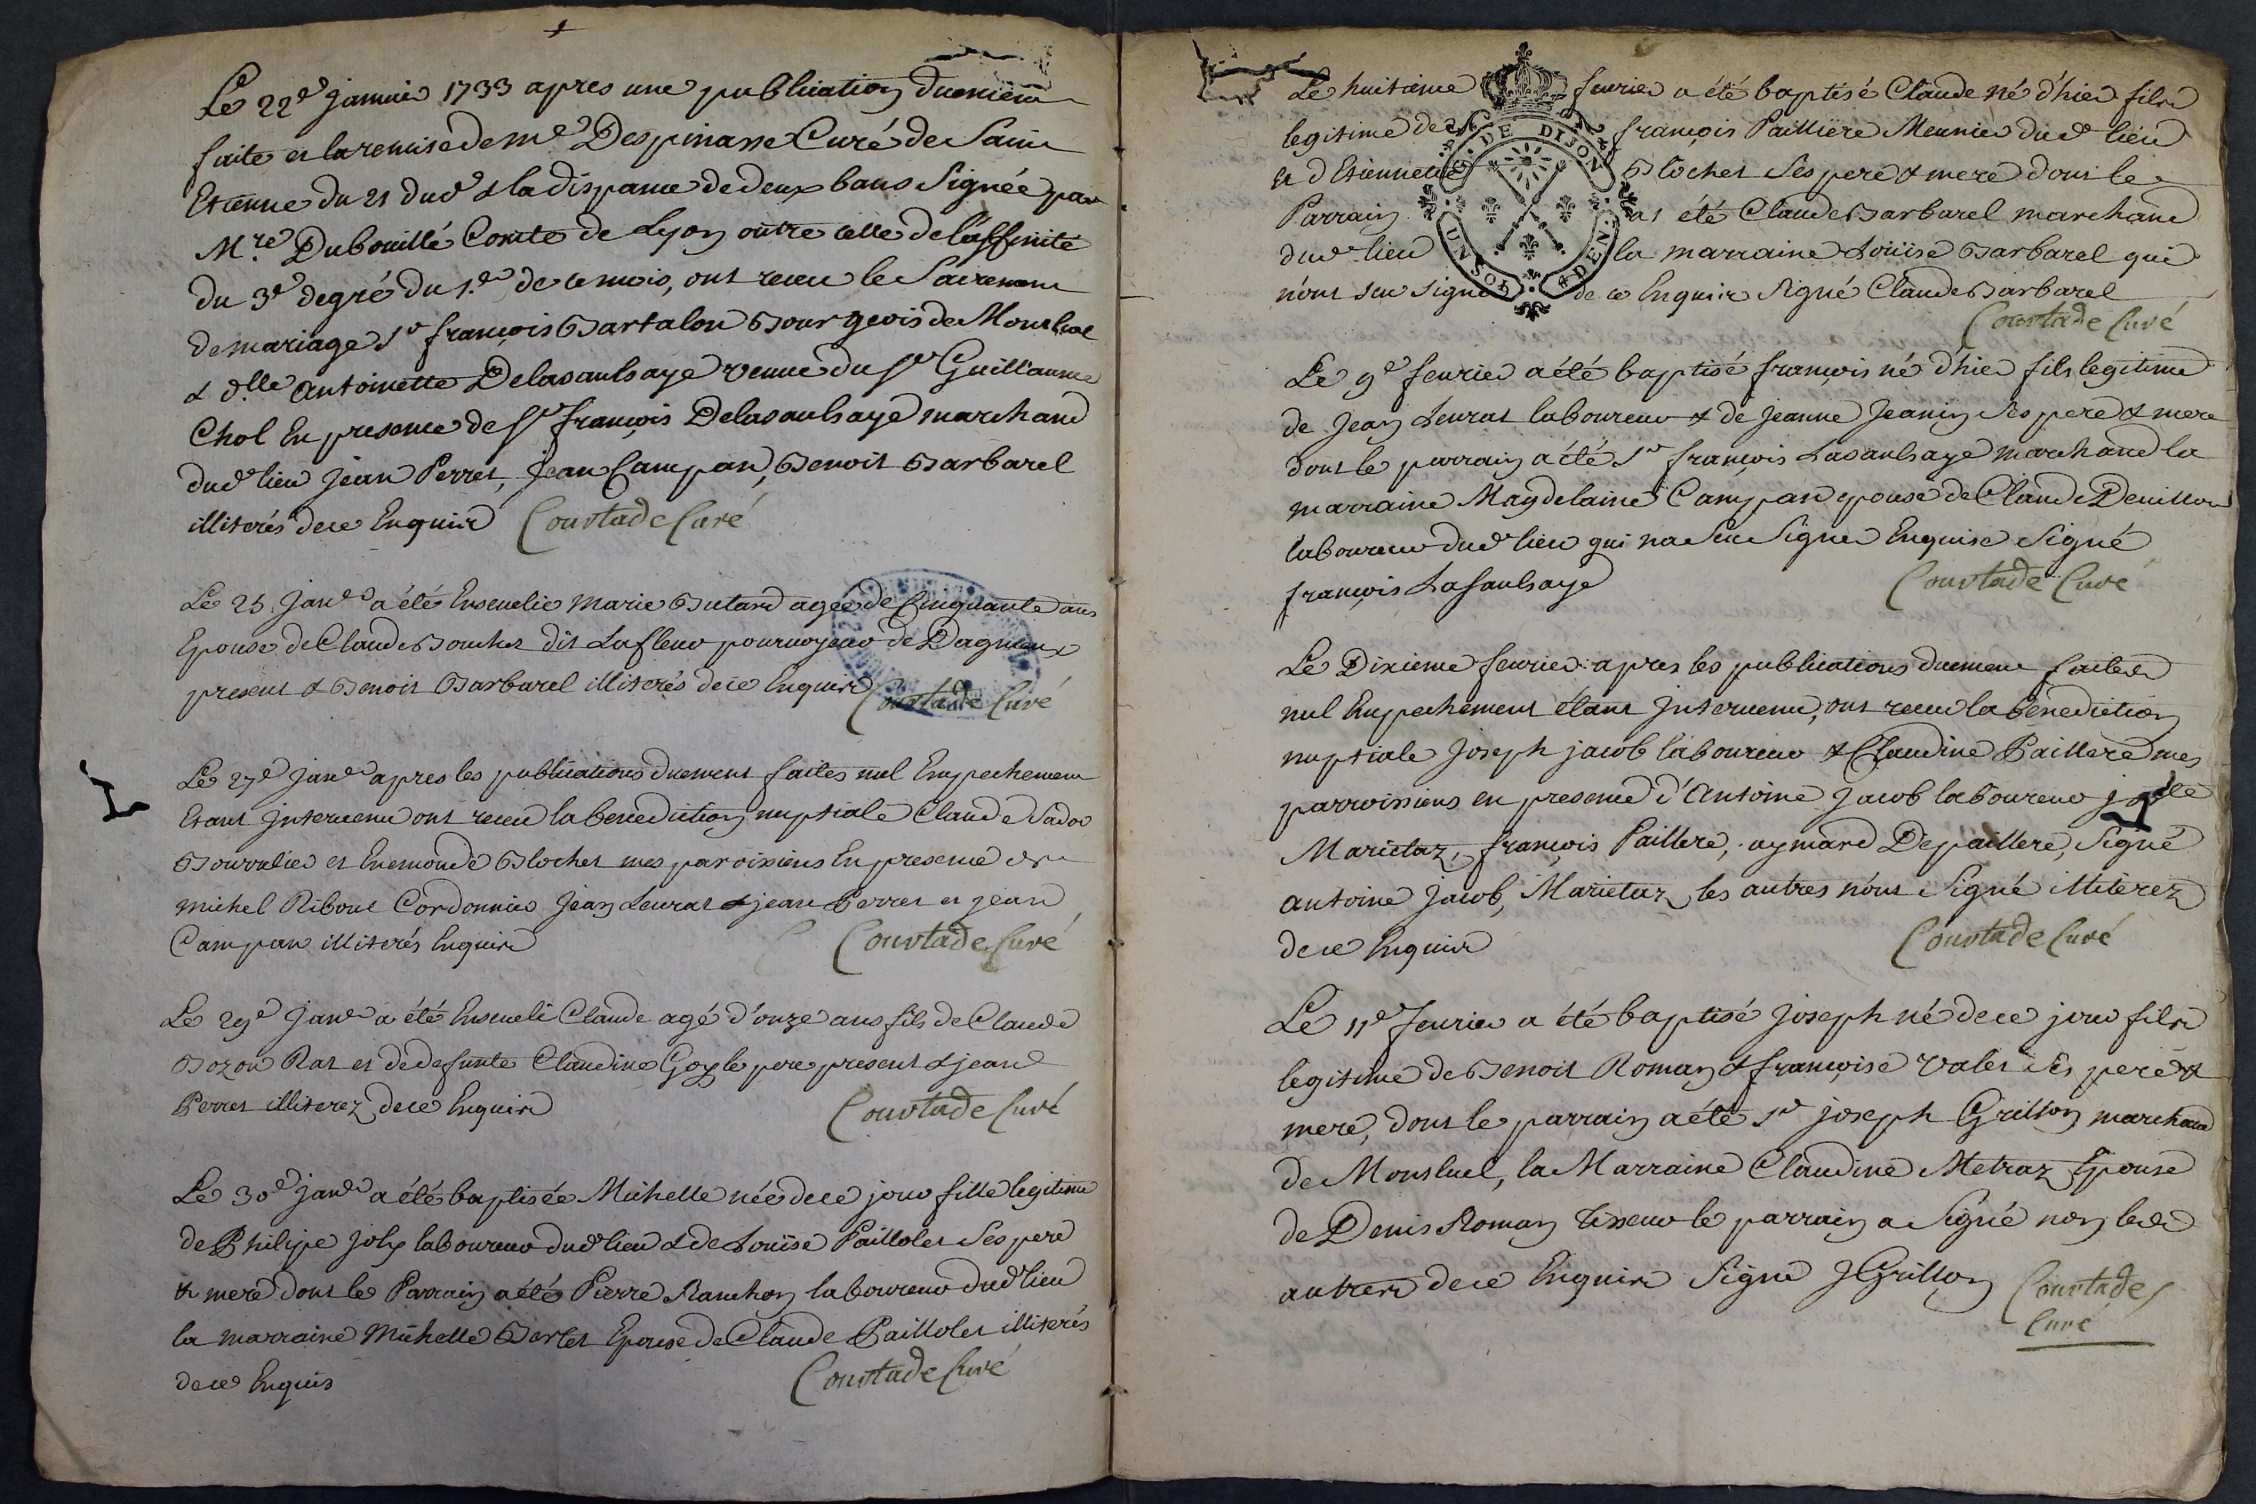 Le 22e janvier 1733 apres une publication duement
faite et la remise de Mr Despinasse Curé de Saint
Etienne du 21 dud & la dispanse de deux bans Signée par
Mre Dubouillé Comte de Lyon outre celle de l'affinité
du 3e degré du 1er de ce mois, ont receu le Sacrement
de mariage Sr françois Bartalon Bourgeois de Montluel
& dlle antoinette Delasaulsaye veuve du Sr Guillaume
Chol En presence de Sr françois Delasaulsaye marchand
dud lieu jean Perret, jean Campan, Benoit Barbarel
illiterés de ce Enquis Courtade Curé
Le 25 Janr a été Ensevelie marie Butard agée de Cinquante ans
Epouse de Claude Bouchet dit Lafleur pourvoyeur de Dagneux
present & Benoit Barbarel illiterés de ce Enquis
Courtade Curé
Le 27e janr apres les publications duement faites nul Empechement
Etant intervenu ont receu la benediction nuptiale Claude Sador
Bourrelier et Enemonde Blochet mes paroissiens En presence de
michel Ribout Cordonnier Jean Leurat & jean Perret et jean
Campan illiterés Enquis Courtade Curé
Le 29e Janr a été Enseveli Claude agé d'onze ans fils de Claude
Bozon Rat et de defunte Claudine Goy le pere present & jean
Perret illiterez de ce Enquis Courtade Curé
Le 30e janr a été baptisée Michelle née de ce jour fille legitime
de Philipe Joly laboureur dud lieu & de Louise Paillolet Ses pere
& mere dont le Parrain a été Pierre Ranchon laboureur dud lieu
la marraine Michelle Berlet Epouse de Claude Paillolet illiterés
de ce Enquis Courtade Curé
Le huitieme fevrier a été baptisé Claude né d'hier fils
G. DE DIJON
legitime de françois Paillere Meunier dud lieu
et d'Etiennette Blochet Ses pere & mere dont le
Parrain a été Claude Barbarel marchand
dud lieu la marraine Louise Barbarel qui
UN SOL 4 DEN
n'ont seu signé de ce Enquis Signé Claude Barbarel
Courtade Curé
Le 9e fevrier a été baptisé françois né d'hier fils legitime
de Jean Leurat laboureur & de jeanne Jeanin Ses pere & mere
dont le parrain a été Sr françois Lasaulsaye marchand la
marraine Magdelaine Campan epouse de Claude Deuillon
laboureur dud lieu qui na Seu Signer Enquise Signé
françois Lasaulsaye Courtade Curé
Le Dixieme fevrier apres les publications duement faites
nul Empechement étant intervenu, ont receu la benediction
nuptiale Joseph jacob laboureur & Claudine Paillere mes
parroissiens en presence d'Antoine Jacob laboureur
Marietaz, françois Paillere, aymard Depaillere, Signé
antoine Jacob, Marietaz les autres n'ont Signé illiterez
de ce Enquis Courtade Curé
Le 11e fevrier a été baptisé Joseph né de ce jour fils
legitime de Benoit Roman & françoise Valet Ses pere &
mere, dont le parrain a été Sr joseph Grillon marchand
de Montluel, la Marraine Claudine Metraz Epouse
de Denis Roman tisseur le parrain a Signé non les
autres de ce Enquis Signé JGrillon Courtade
Curé